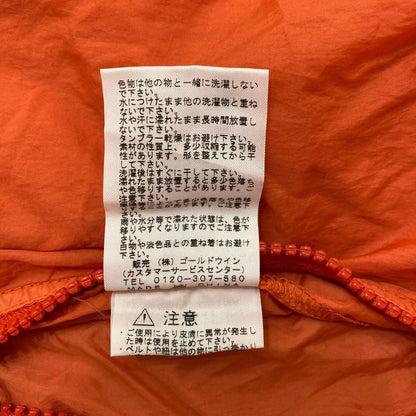 色物は他の物と一緒に洗濯しない
で下さい。
水につけたまま他の洗濯物と重ね
ないで下さい。
水や汗に濡れたまま長時間放置し
ないで下さい。
タンブラー乾燥はお避け下さい。
素材の性質上、多少収縮する可能
性があります。形を整えてから干
して下さい。
洗濯後はすぐに干して下さい。
濡れたまま放置すると多少色落ち
や色移りすることがあります。ご
注意下さい。
雨や水分等で濡れた状態は、色が
移りやすくなりますのでご注意下
さい。
白物や淡色品との重ね着はお避け
下さい。
販売 (株) ゴールドウイン
(カスタマーサービスセンター)
TEL 0120-307-560
MADE
⚠ 注意
・ご使用により皮膚に異常が発生し
た時は使用を止めて下さい。
ベルトや紐は他の物に引っ掛かり